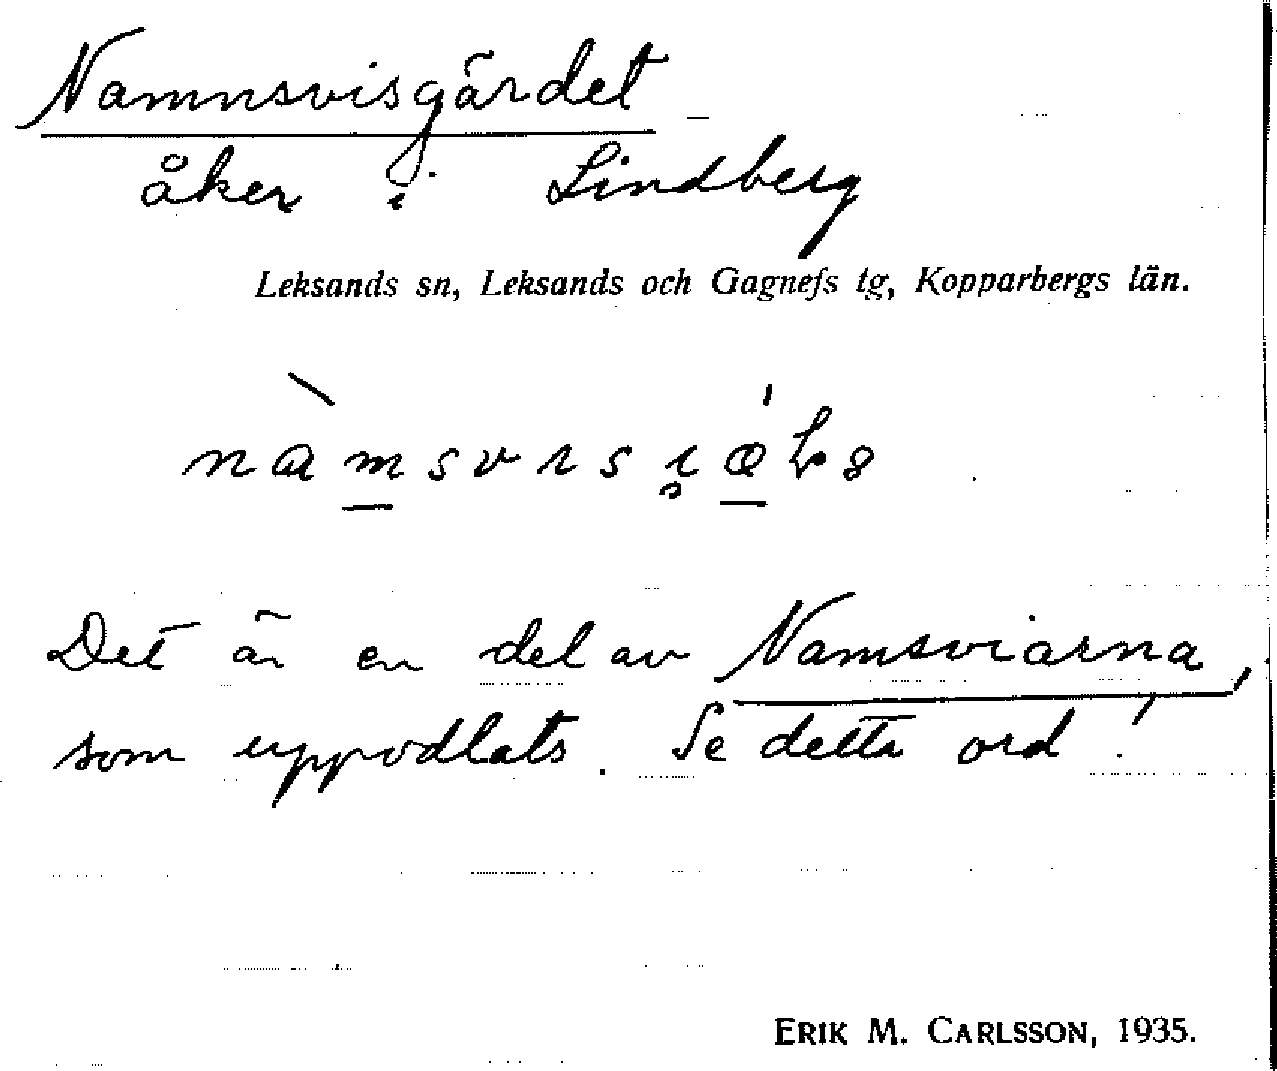 Namnsvisgärdet
åker i Lindberg
Leksands sn, Leksands och Gagnefs tg, Kopparbergs län.
Det är en del av Namsviarna,
som uppodlats. Se detta ord!
ERIK M. CARLSSON, 1935.